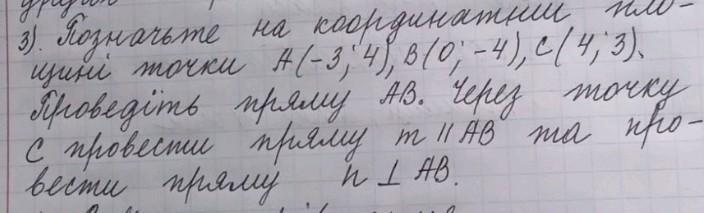 3). Позначьте на координатній пло-
щині точки A(-3; 4), B(0; -4), C(4; 3).
Проведіть пряму AB. Через точку
C провести пряму m || AB та про-
вести пряму n ⊥ AB.